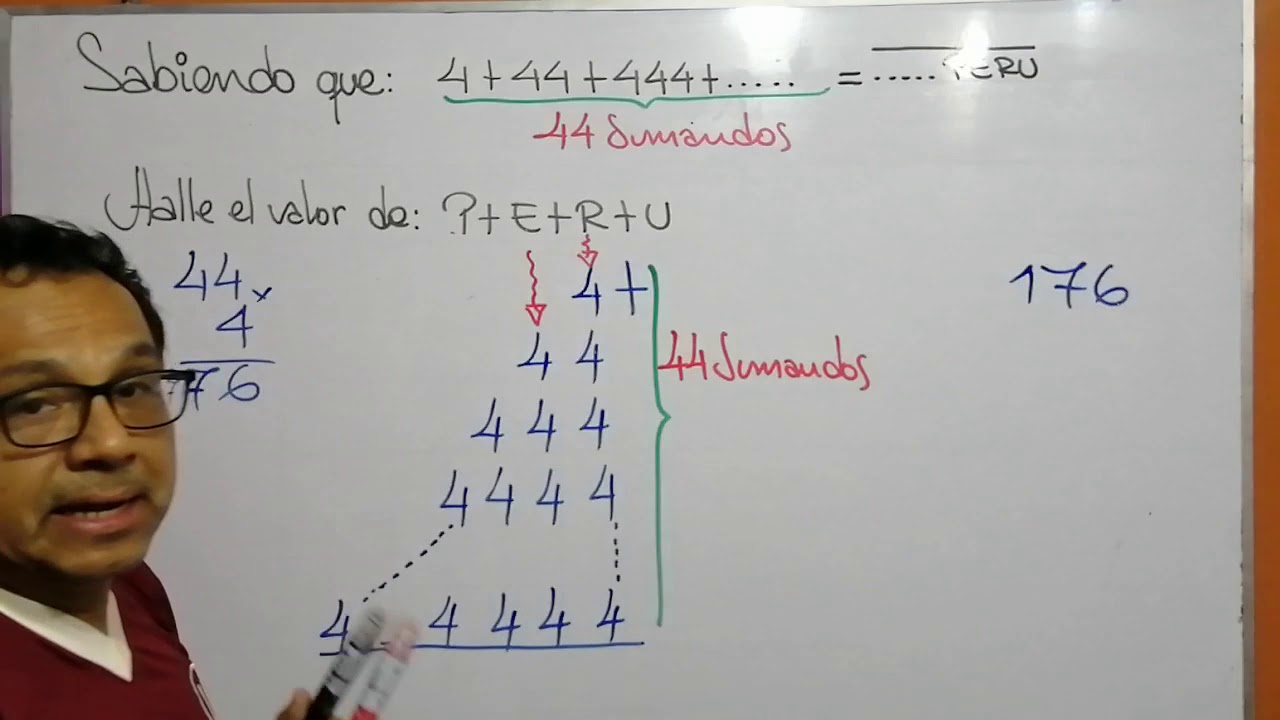 Sabiendo que: 4+44+444+..... = .....PERU
44 Sumandos
Halle el valor de: P+E+R+U
44x
4
176
4+
44
444
4444
4 4444
44 Sumandos
176